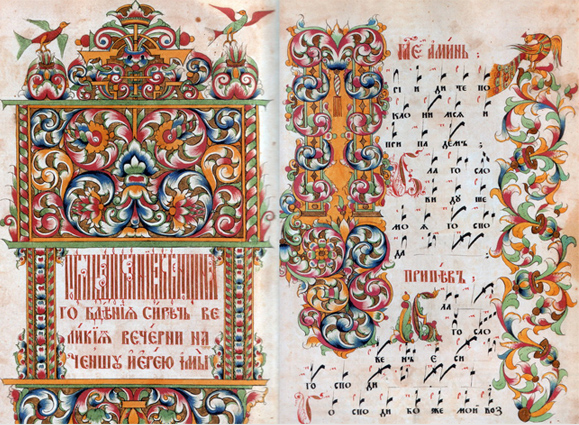 го бдѣнїѧ сирѣчь ве
ликїѧ вечерни на
ченшу їерею
аминь :
рі и ди те по
кло ни мсѧ и
при па демъ :
Б ла го сло
ви ду ше
мо ѧ го спо
да
припѣвъ :
Б ла го сло
ве нъ е си
го спо ди
Г о спо ди бо же мои воз